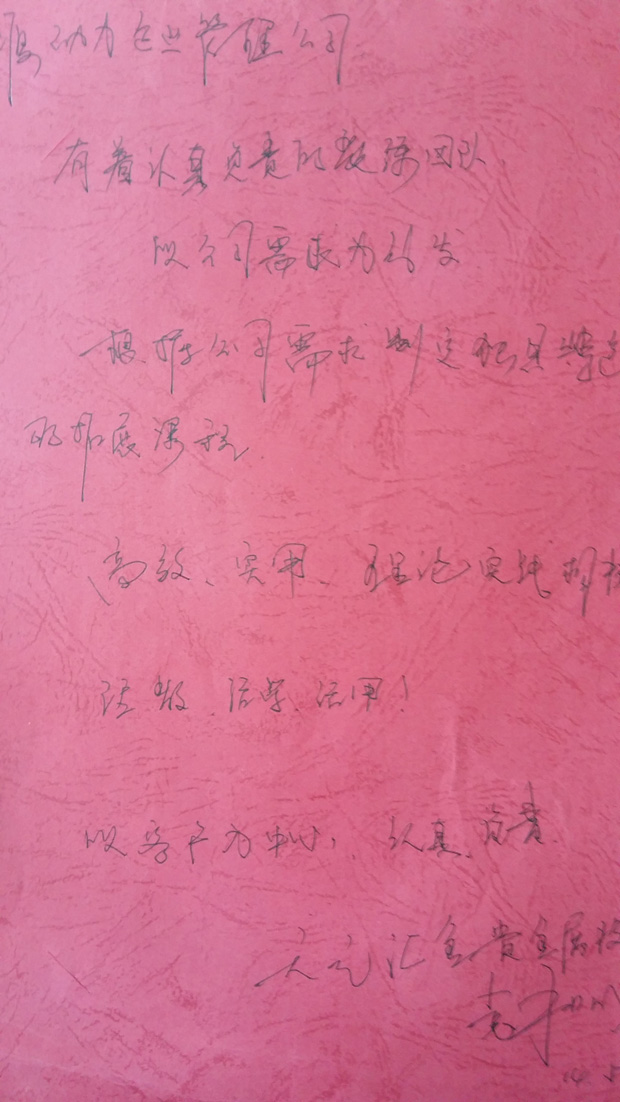 动力企业管理公司
有着认真负责的教练团队
以公司需求为出发
根据公司需求制定
的拓展课程.
高效、实用、理论实践相
活教、活学、活用!
以客户为中心, 认真、负责.
天元汇金贵金属